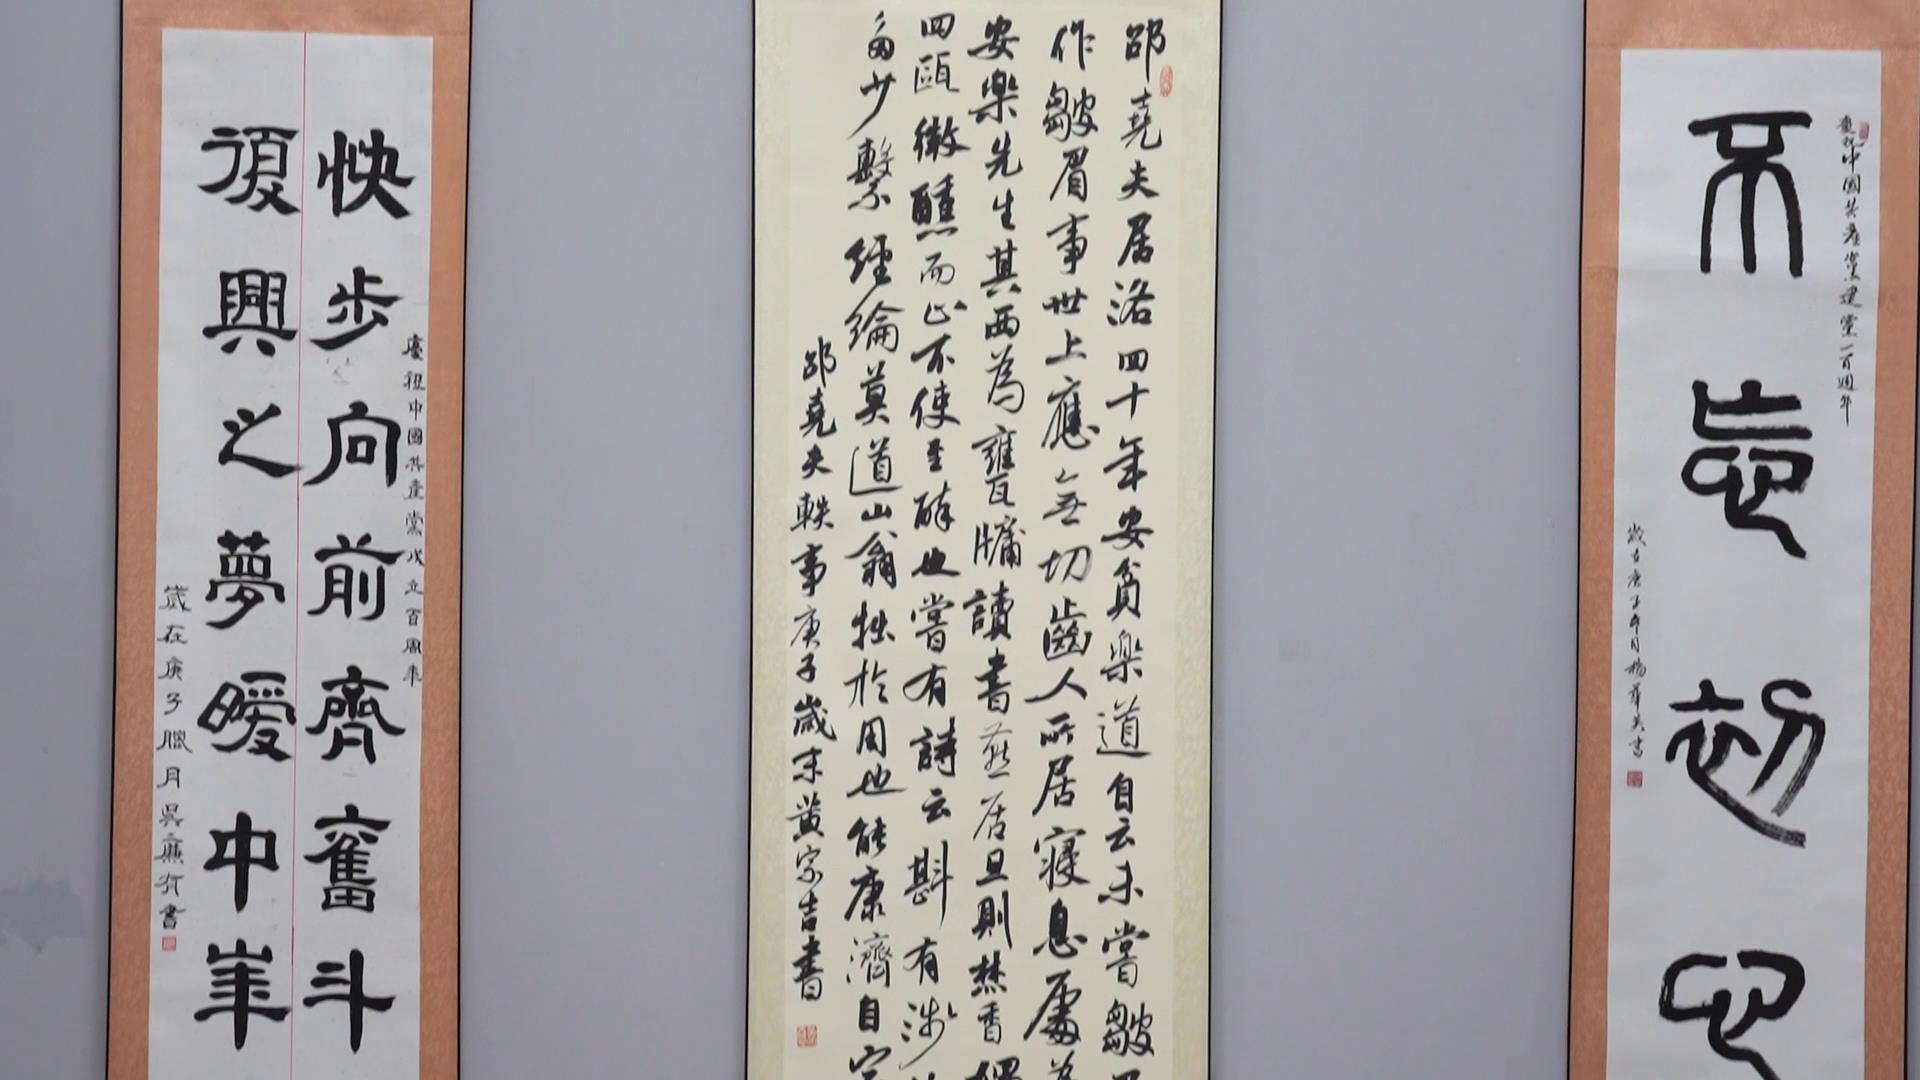 慶祝中國共產黨建黨一百週年
不忘初心
歲在庚子年月楊華英書
邵堯夫居洛四十年安貧樂道自云未嘗皺
作皺眉事世上應無切齒人所居寢息處為
安樂先生其西為甕牖讀書燕居旦則焚香
四甌微醺而止不使至醉也嘗有詩云斟有淺
多少繫經綸莫道山翁拙於用也能康濟自家
邵堯夫軼事庚子歲末黃宗吉書
慶祝中國共產黨成立百周年
快步向前齊奮斗
復興之夢曖中華
歲在庚子臘月吳廉有書